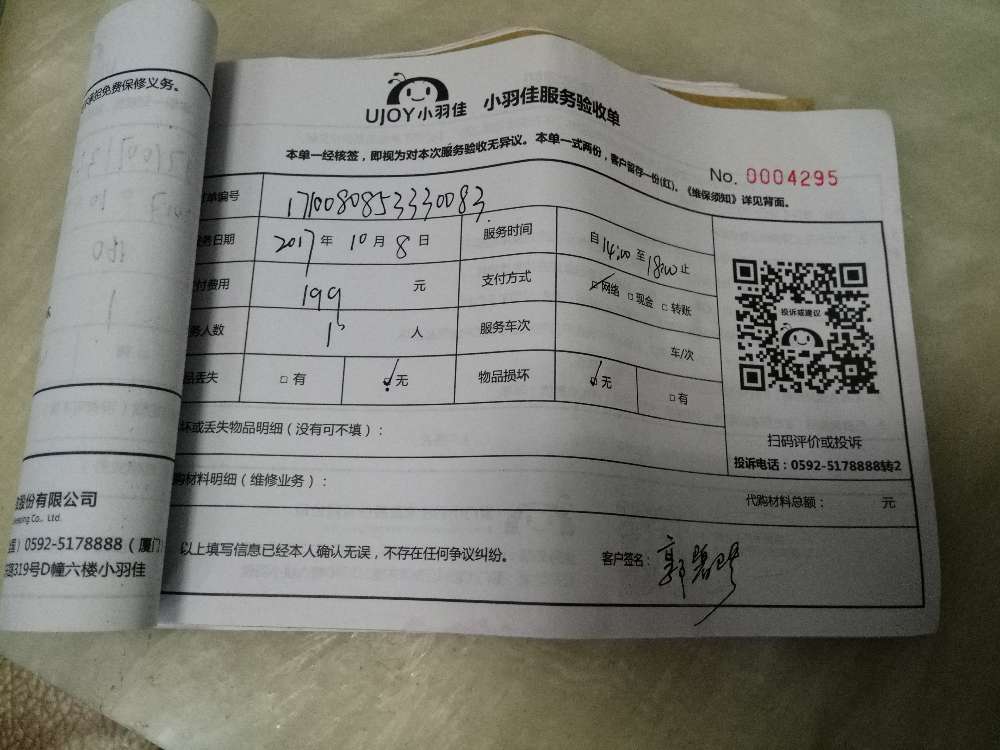 UJOY小羽佳 小羽佳服务验收单
本单一经核签，即视为对本次服务验收无异议。本单一式两份，客户留存一份(红)。《维保须知》详见背面。
No. 0004295
单编号 17100808533330083
务日期 2017年10月8日 服务时间 自14:00至18:00止
付费用 199 元 支付方式 ☑网络 □现金 □转账
务人数 1 人 服务车次 车/次
品丢失 □有 ☑无 物品损坏 ☑无 □有
坏或丢失物品明细（没有可不填）：
购材料明细（维修业务）： 代购材料总额： 元
以上填写信息已经本人确认无误，不存在任何争议纠纷。 客户签名：
投诉或建议
扫码评价或投诉
投诉电话：0592-5178888转2
承担免费保修义务。
股份有限公司
Co., Ltd.
0592-5178888（厦门
319号D幢六楼小羽佳